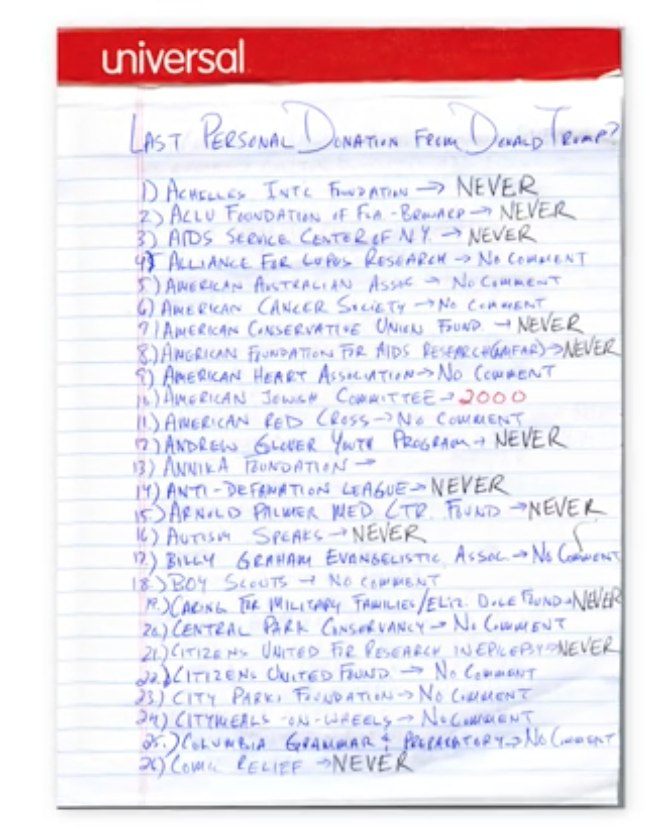 universal
LAST PERSONAL DONATION FROM DONALD TRUMP?
1) ACHILLES INTL FOUNDATION → NEVER
2) ACLU FOUNDATION OF FLA.-BROWARD → NEVER
3) AIDS SERVICE CENTER OF N.Y. → NEVER
4) ALLIANCE FOR LUPUS RESEARCH → NO COMMENT
5) AMERICAN AUSTRALIAN ASSOC → NO COMMENT
6) AMERICAN CANCER SOCIETY → NO COMMENT
7) AMERICAN CONSERVATIVE UNION FOUND. → NEVER
8) AMERICAN FOUNDATION FOR AIDS RESEARCH (AMFAR) → NEVER
9) AMERICAN HEART ASSOCIATION → NO COMMENT
10) AMERICAN JEWISH COMMITTEE → 2000
11.) AMERICAN RED CROSS → NO COMMENT
12) ANDREW GLOVER YOUTH PROGRAM → NEVER
13) ANNIKA FOUNDATION →
14) ANTI-DEFAMATION LEAGUE → NEVER
15) ARNOLD PALMER MED CTR. FUND → NEVER
16) AUTISM SPEAKS → NEVER
17.) BILLY GRAHAM EVANGELISTIC ASSOC. → NO COMMENT
18.) BOY SCOUTS → NO COMMENT
19.) CARING FOR MILITARY FAMILIES/ELIZ. DOLE FOUND → NEVER
20.) CENTRAL PARK CONSERVANCY → NO COMMENT
21.) CITIZENS UNITED FOR RESEARCH IN EPILEPSY → NEVER
22.) CITIZENS UNITED FOUND. → NO COMMENT
23) CITY PARKS FOUNDATION → NO COMMENT
24) CITYMEALS-ON-WHEELS → NO COMMENT
25.) COLUMBIA GRAMMAR & PREPARATORY → NO COMMENT
26) COMIC RELIEF → NEVER